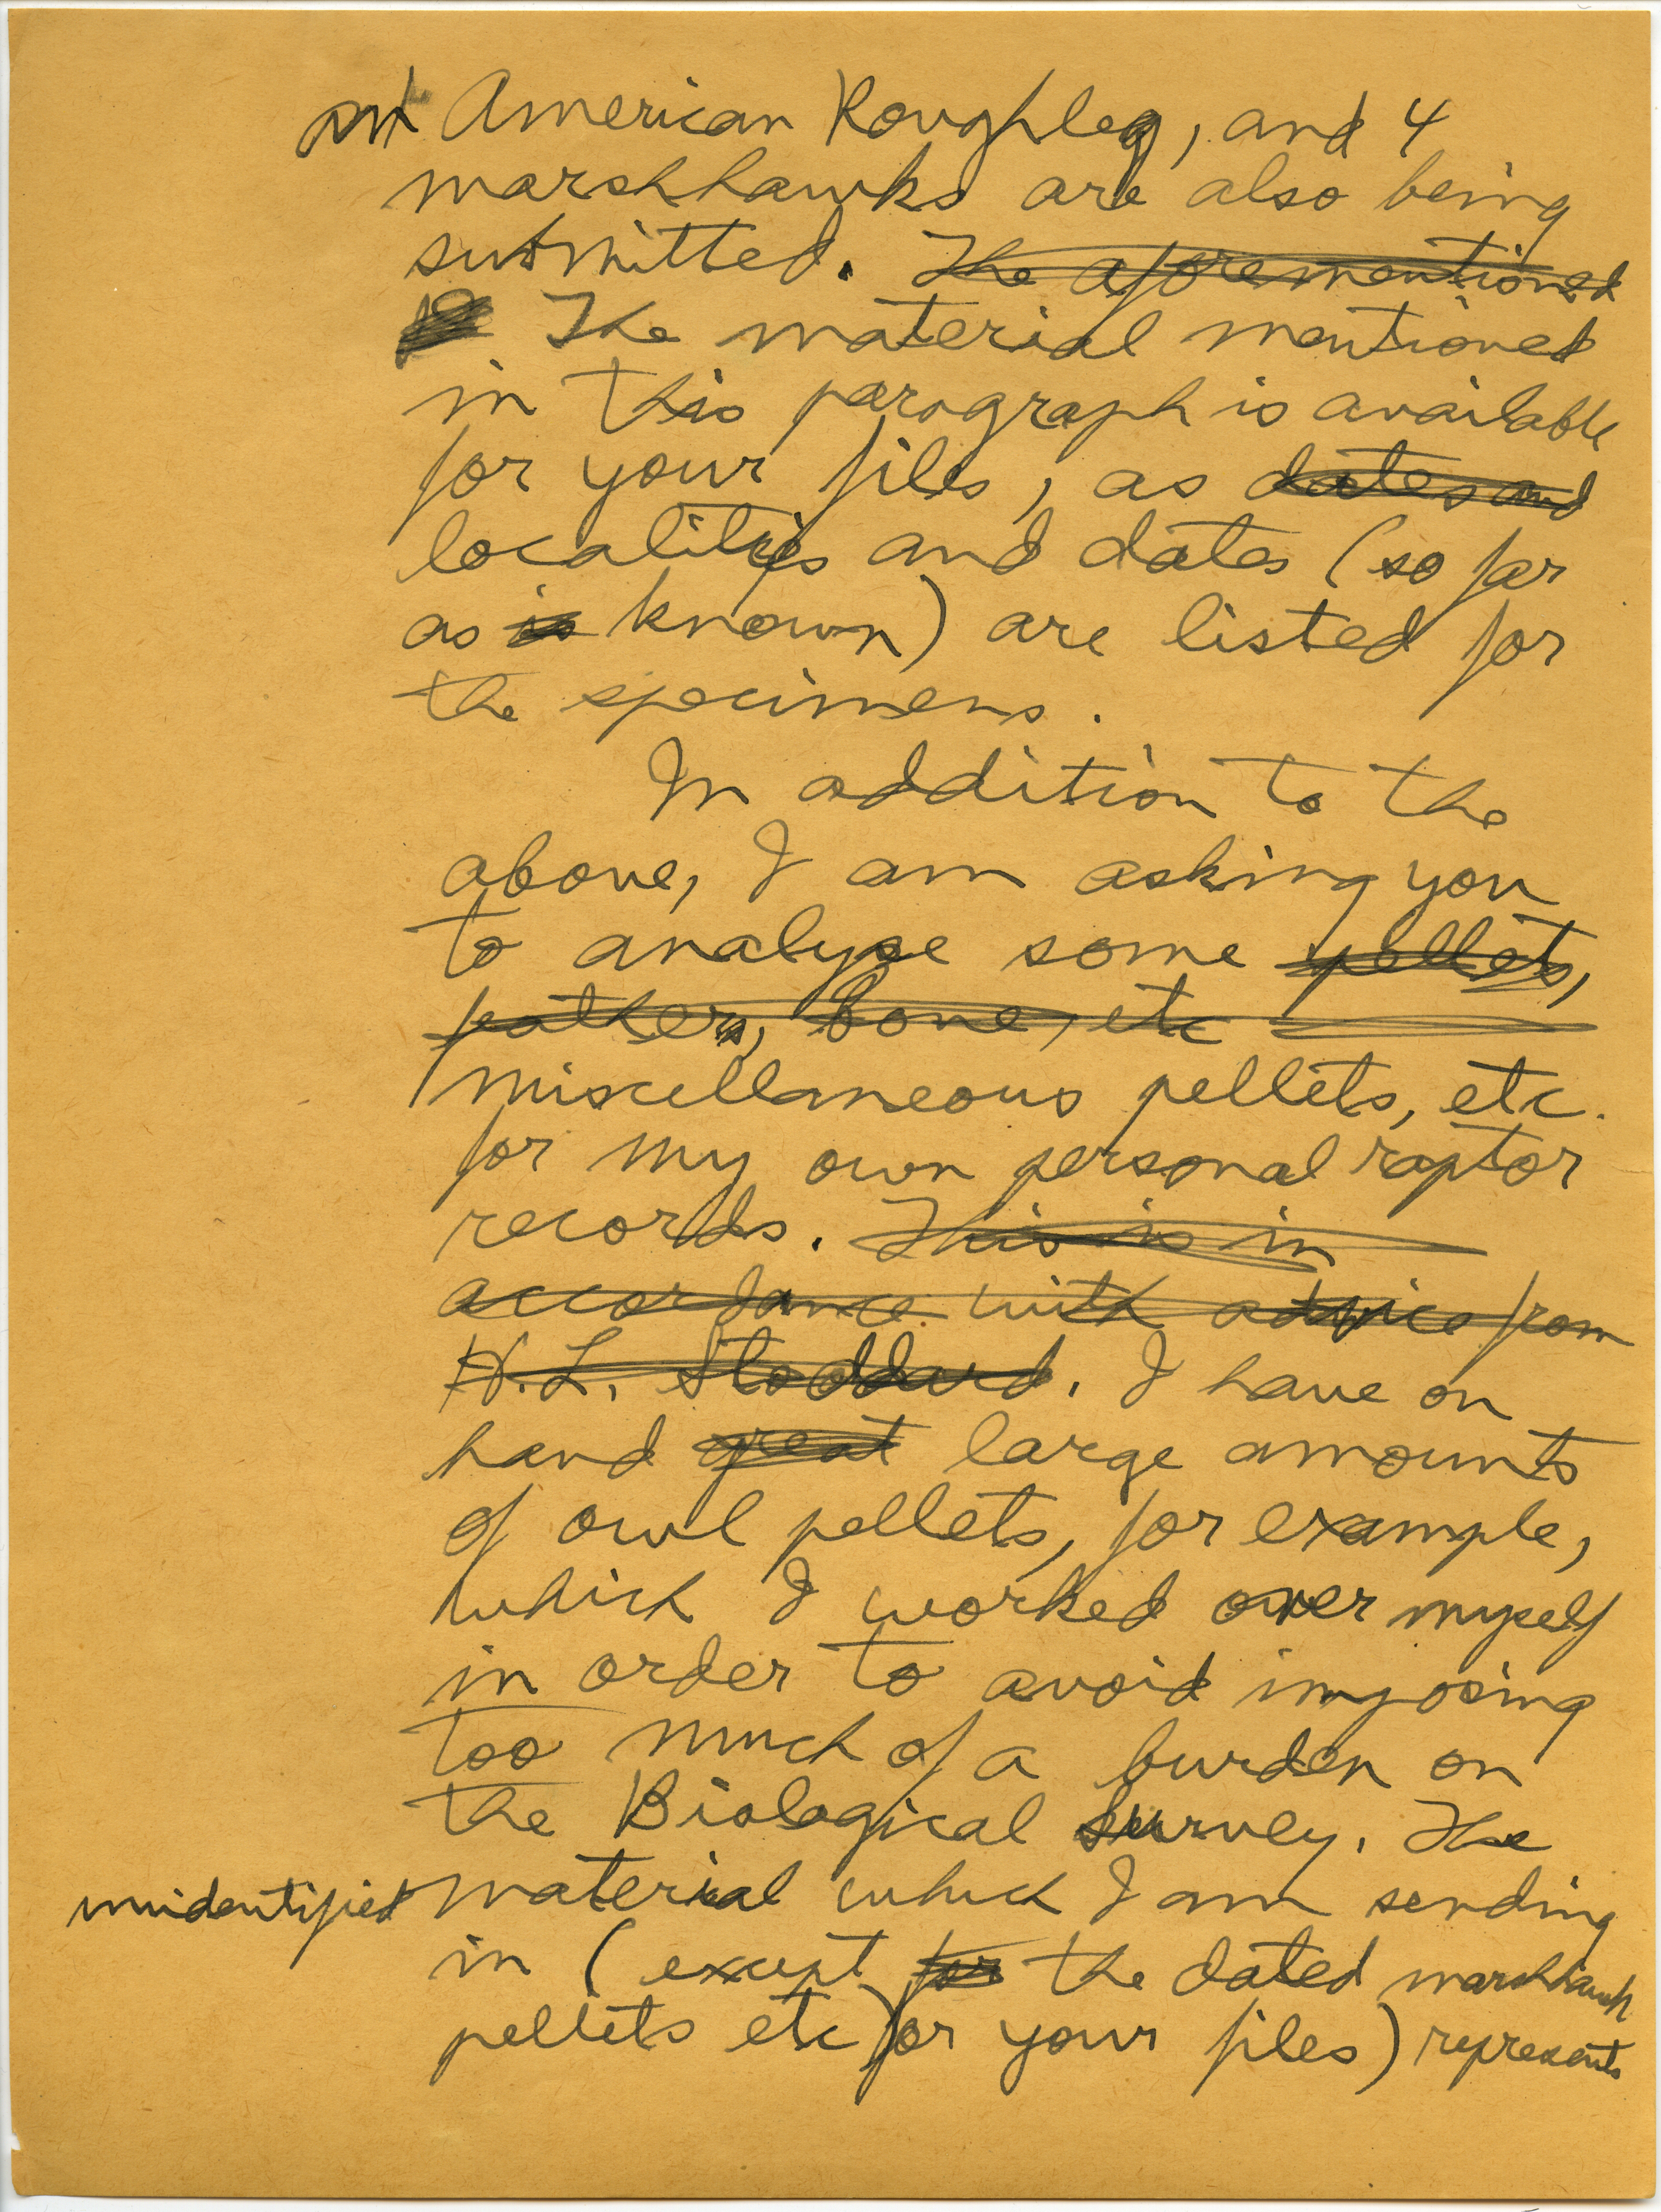 American Roughleg, and 4
marshhawks are also being
submitted. The aforementioned
The material mentioned
in this paragraph is available
for your files, as dates and
localities and dates (so far
as is known) are listed for
the specimens.
In addition to the
above, I am asking you
to analyse some pellets,
feathers, bone, etc
miscellaneous pellets, etc.
for my own personal raptor
records. This is in
accordance with advice from
H.L. Stoddard. I have on
hand great large amounts
of owl pellets, for example,
which I worked over myself
in order to avoid imposing
too much of a burden on
the Biological Survey. The
unidentified material which I am sending
in (except for the dated marshhawk
pellets etc for your files) represents